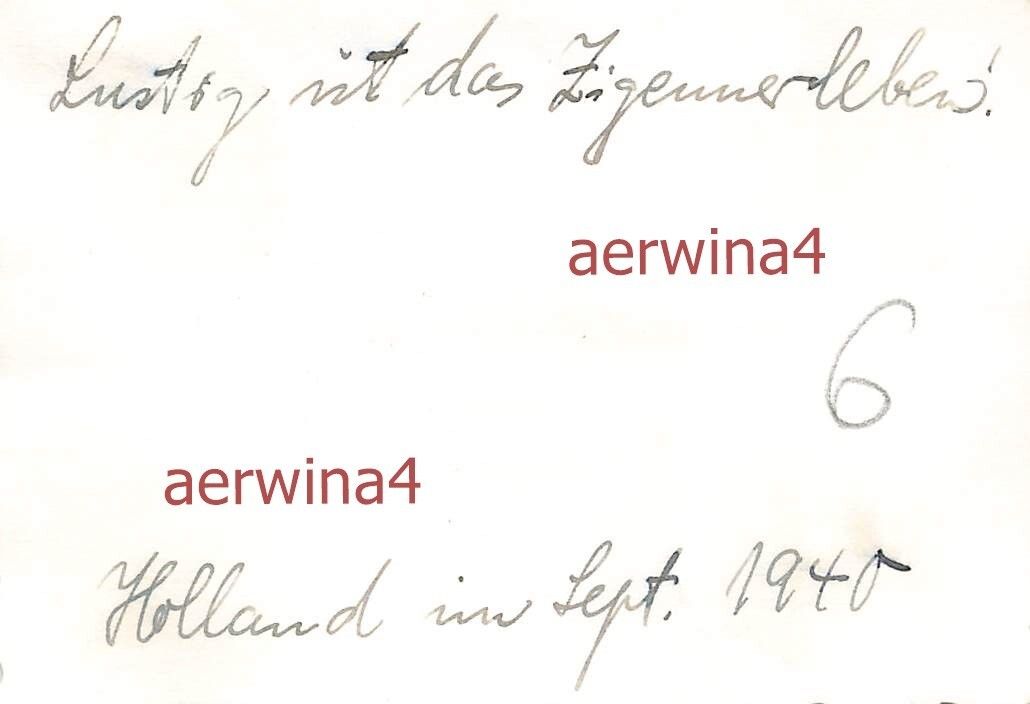 Lustig ist das Zigeunerleben!
aerwina4
6
aerwina4
Holland im Sept. 1940